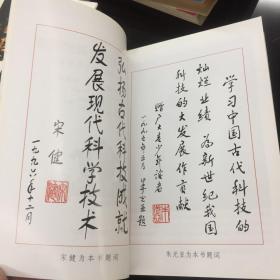 弘扬古代科技成就
发展现代科学技术
宋健
一九九六年十二月
宋健为本书题词
学习中国古代科技的
灿烂业绩 为新世纪我国
科技的大发展作贡献
赠广大青少年读者
朱光亚题
朱光亚为本书题词